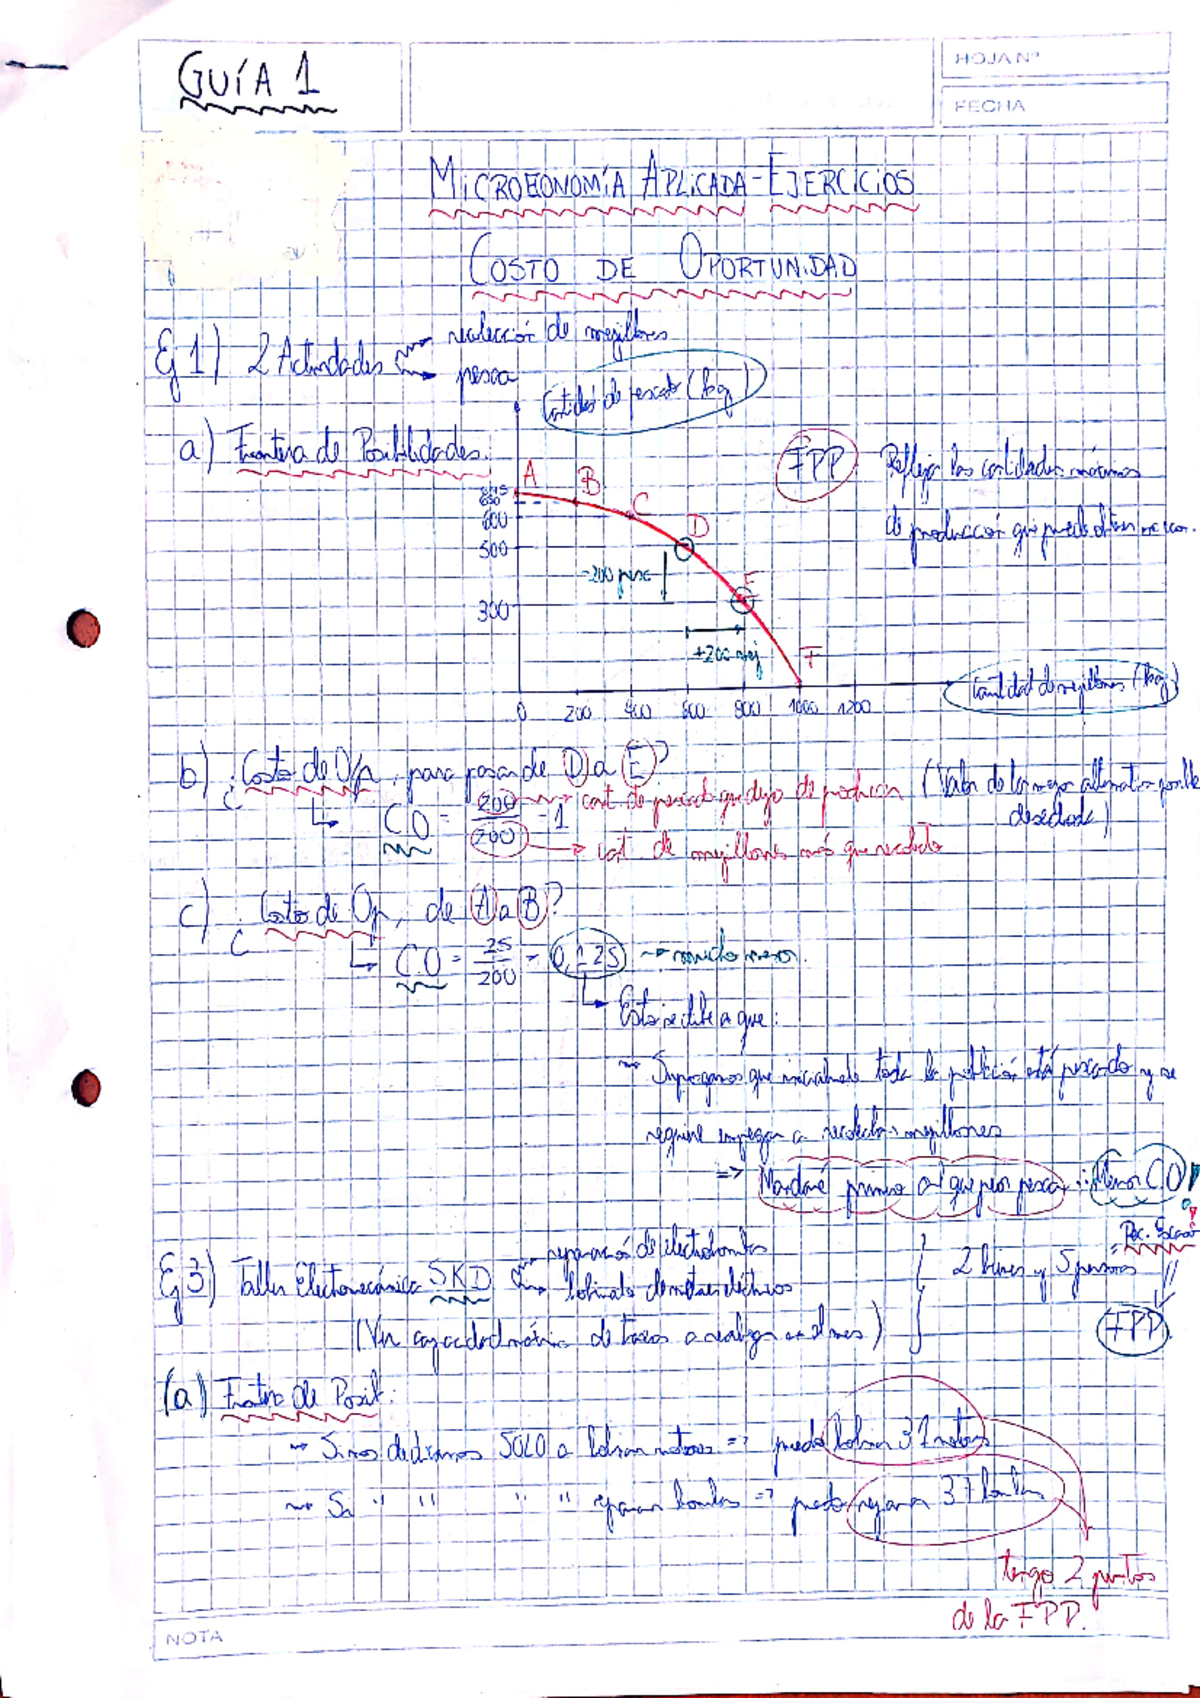 GUÍA 1
HOJA Nº
FECHA
MICROEONOMÍA APLICADA - EJERCICIOS
COSTO DE OPORTUNIDAD
Ej 1) 2 Actividades
recolección de mejillones
pesca
Cantidad de pescado (kg)
a) Frontera de Posibilidades.
FPP Refleja las cantidades máximas
de producción que puede obtener
A
B
C
D
E
F
650
600
500
300
-200 pesc
+200 mej
0 200 400 600 800 1000 1200
Cantidad de mejillones (kg)
b) ¿Costo de Op, para pasar de D a E?
CO = 200/200 = 1
cant. de pescado que dejo de producir
(Valor de la mejor alternativa posible
desechada)
cant. de mejillones más que recolecto
c) ¿Costo de Op, de A a B?
CO = 25/200 = 0,125 mucho menor.
Esto se debe a que:
Supongamos que inicialmente toda la población está pescando y se
requiere empezar a recolectar mejillones
=> Mandaré primero al que peor pesca ∴ Menor CO!
Ej 3) Taller Electromecánica SKD
reparación de electrobombas
bobinado de motores eléctricos
2 bienes y 5 personas
Rec. Escaso
=> FPP
(Ver capacidad máxima de tareas a realizar en el mes)
(a) Frontera de Posib:
Si nos dedicamos SOLO a bobinar motores => puedo bobinar 31 motores
Si " " " " reparar bombas => puedo reparar 37 bombas
tengo 2 puntos
de la FPP.
NOTA